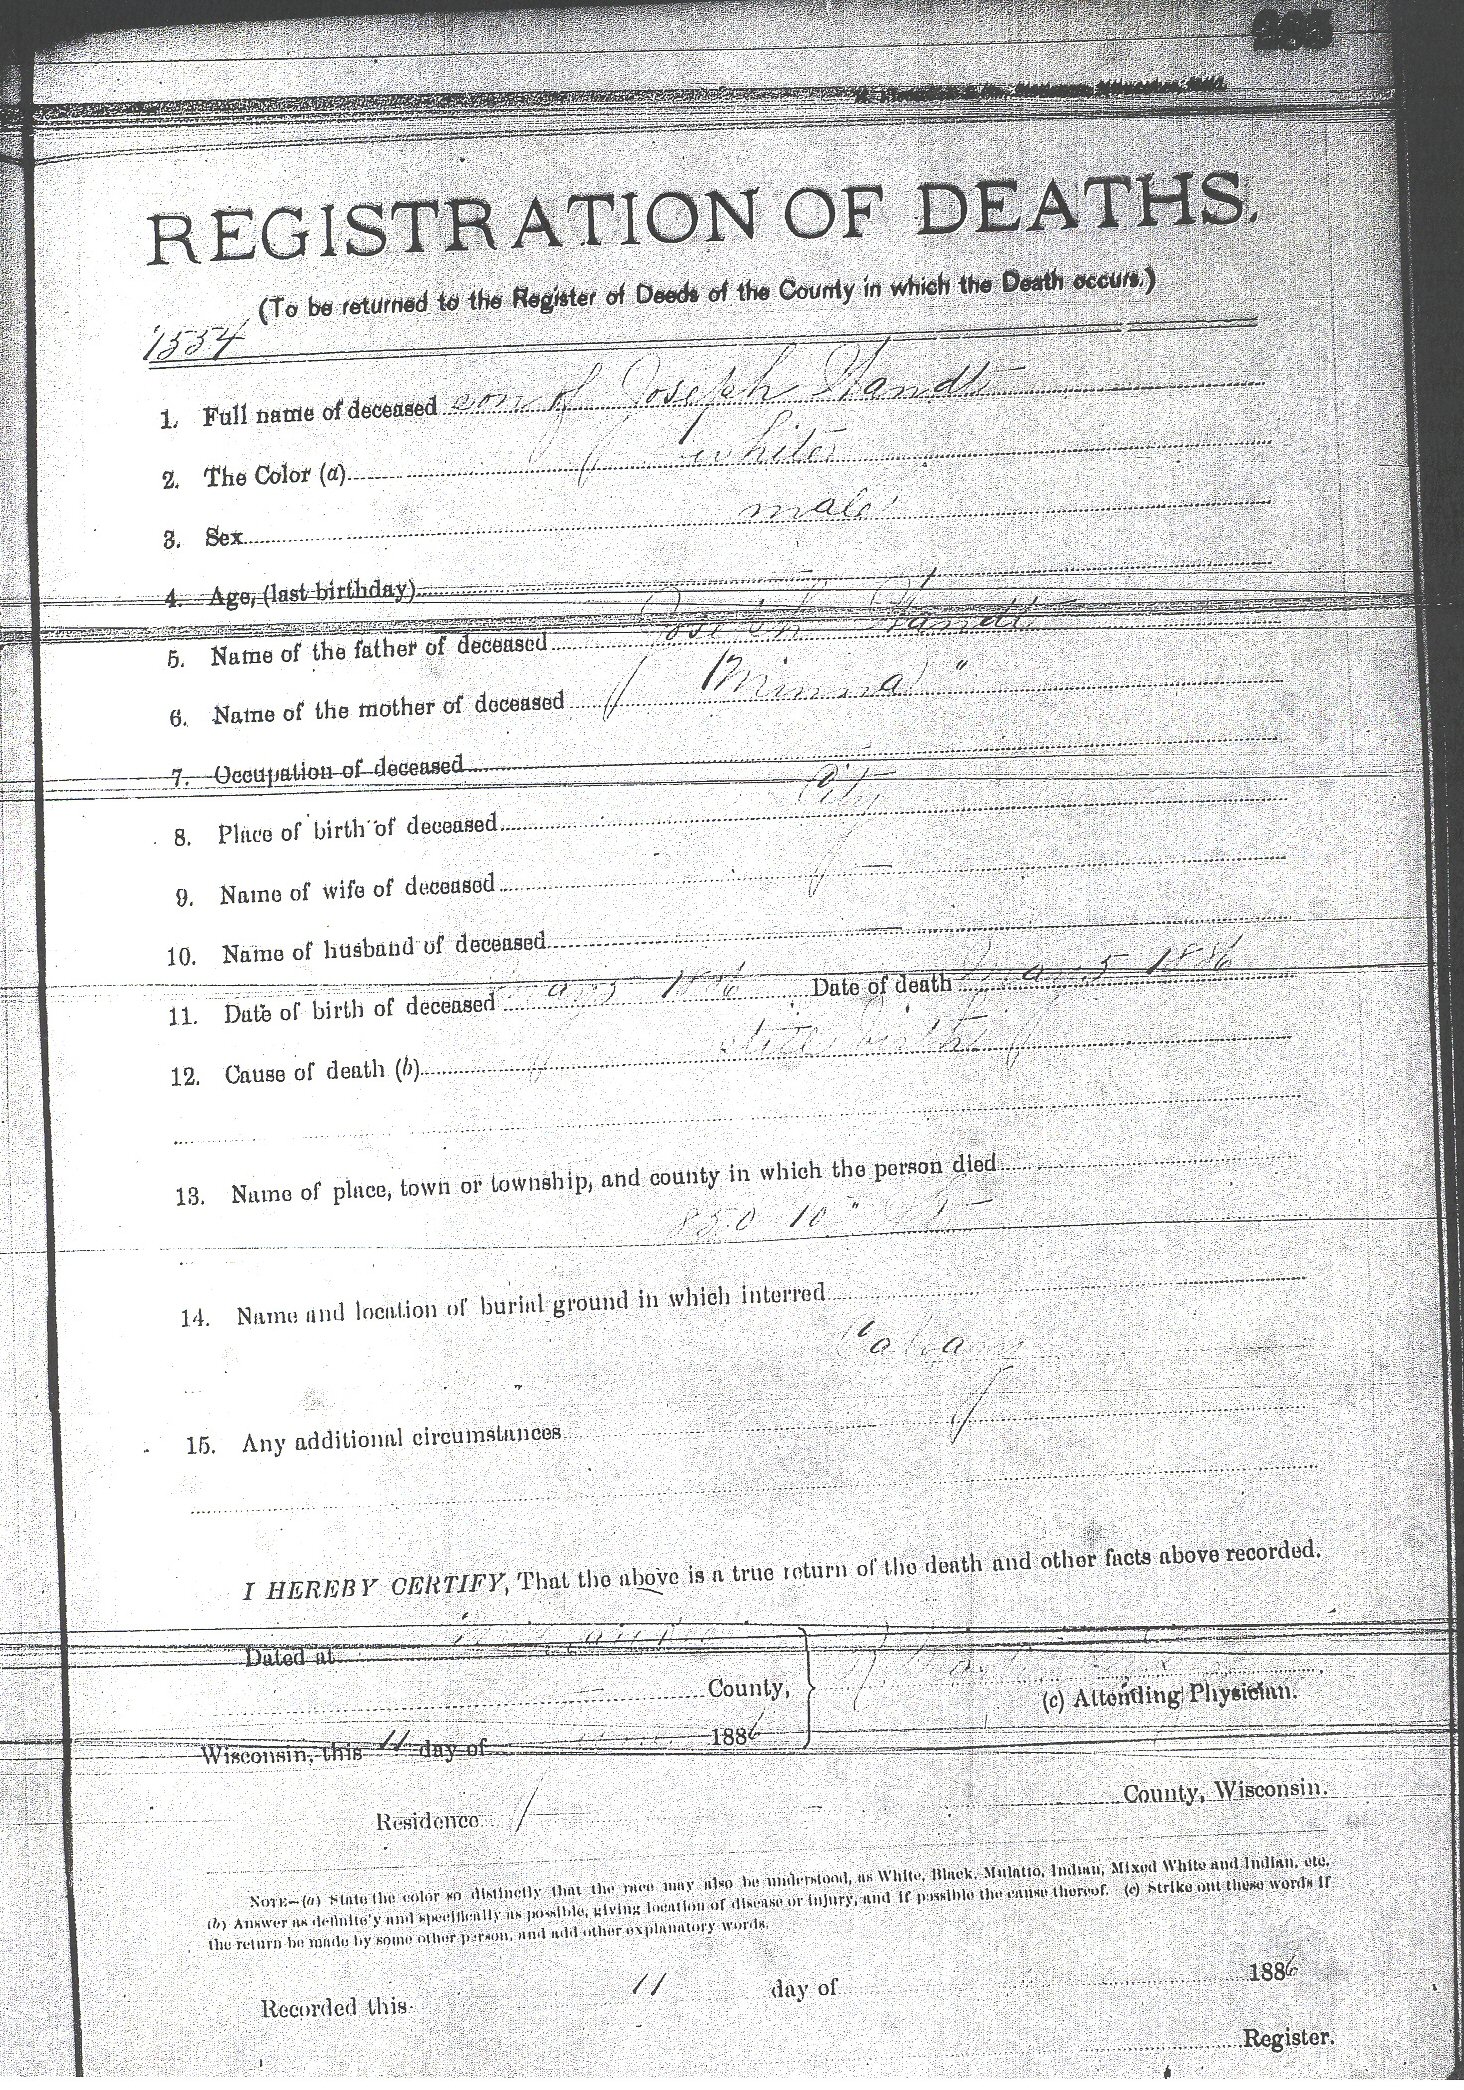 265
REGISTRATION OF DEATHS.
(To be returned to the Register of Deeds of the County in which the Death occurs.)
1554
1. Full name of deceased son of Joseph Wandt
2. The Color (a) white
3. Sex male
4. Age, (last birthday)
5. Name of the father of deceased Joseph Wandt
6. Name of the mother of deceased Minna "
7. Occupation of deceased
8. Place of birth of deceased City
9. Name of wife of deceased —
10. Name of husband of deceased —
11. Date of birth of deceased 5 1886 Date of death 5 1886
12. Cause of death (b) still birth
13. Name of place, town or township, and county in which the person died
850 10"
14. Name and location of burial ground in which interred
Calvary
15. Any additional circumstances
I HEREBY CERTIFY, That the above is a true return of the death and other facts above recorded.
Dated at
County,
(c) Attending Physician.
Wisconsin, this 11 day of 1886
Residence County, Wisconsin.
NOTE—(a) State the color so distinctly that the race may also be understood, as White, Black, Mulatto, Indian, Mixed White and Indian, etc.
(b) Answer as definite'y and specifically as possible, giving location of disease or injury, and if possible the cause thereof. (c) Strike out these words if
the return be made by some other person, and add other explanatory words.
Recorded this 11 day of 1886
Register.